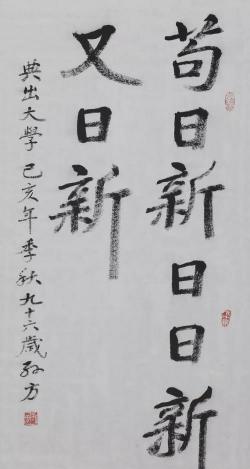 苟日新日日新
又日新
典出大學己亥年季秋九十六歲孙方